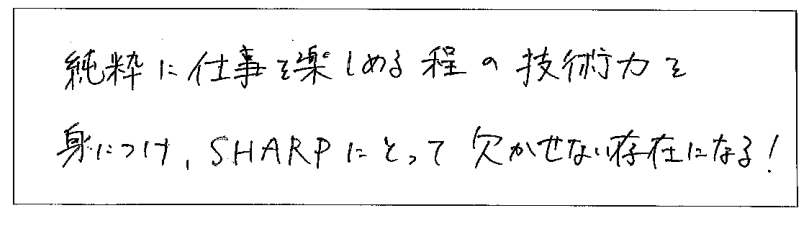 純粋に仕事を楽しめる程の技術力を
身につけ、SHARPにとって欠かせない存在になる!